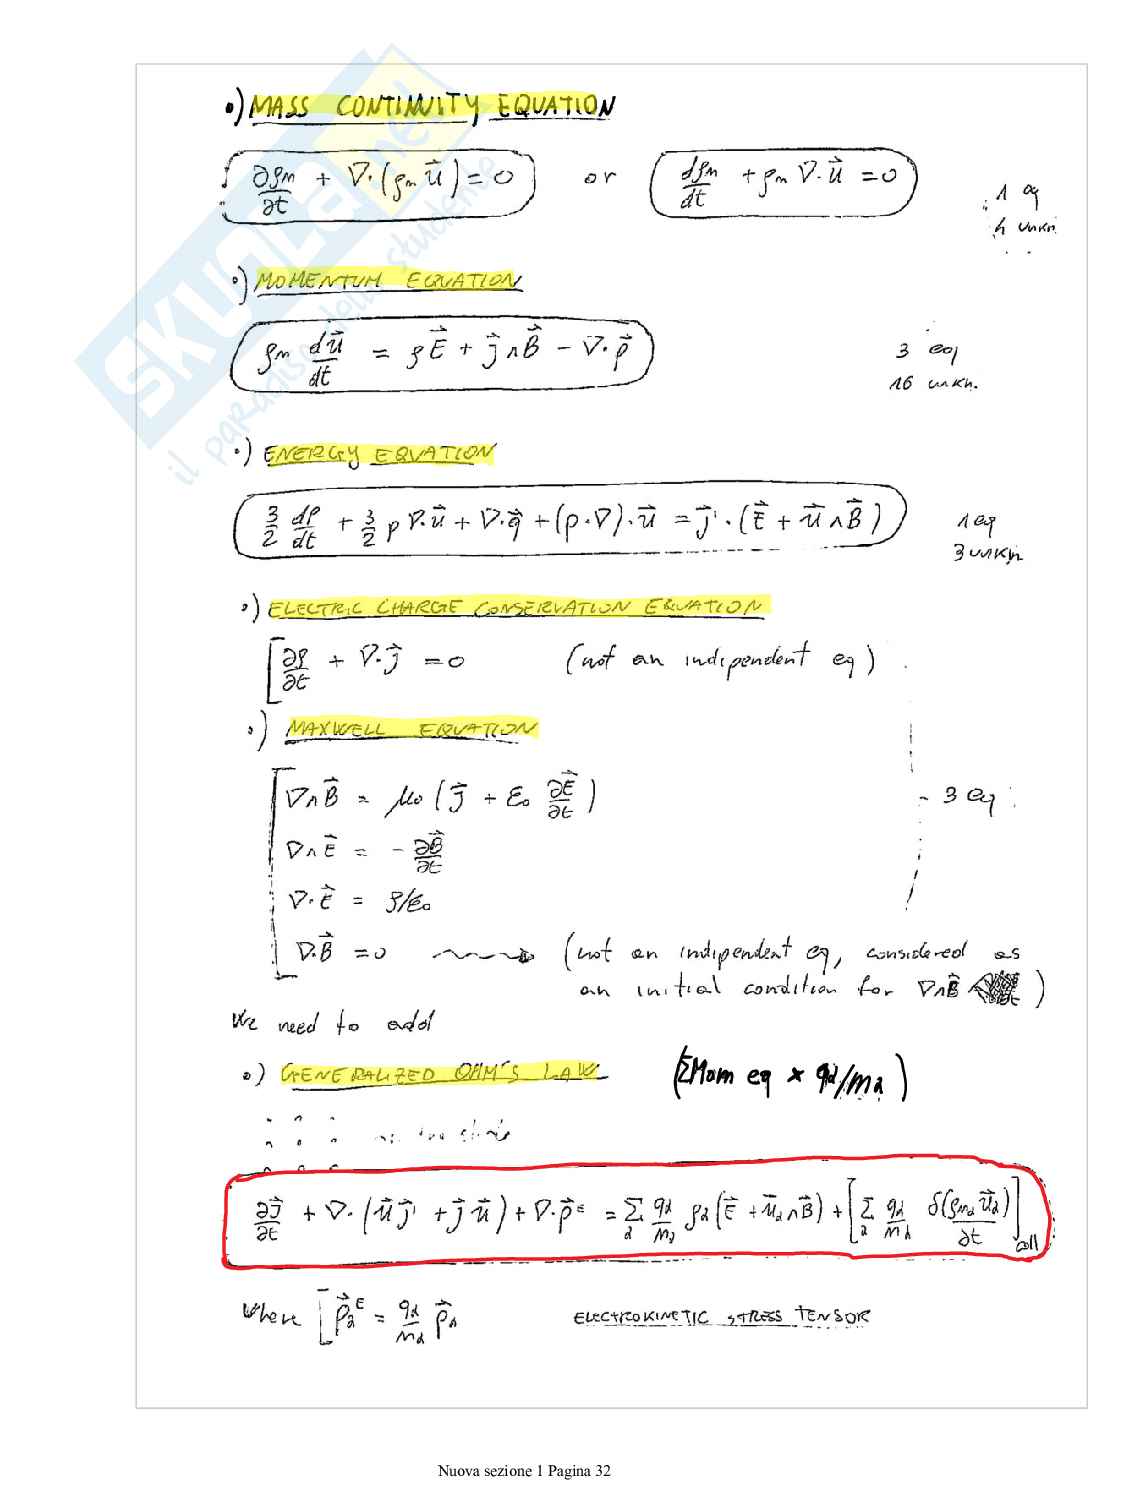 •) MASS CONTINUITY EQUATION
∂ρm/∂t + ∇·(ρm u⃗) = 0 or dρm/dt + ρm ∇·u⃗ = 0
1 eq
4 unkn.
•) MOMENTUM EQUATION
ρm du⃗/dt = ρE⃗ + j⃗∧B⃗ − ∇·p⃗
3 eq
16 unkn.
•) ENERGY EQUATION
3/2 dp/dt + 3/2 p ∇·u⃗ + ∇·q⃗ + (p·∇)·u⃗ = j⃗'·(E⃗ + u⃗∧B⃗)
1 eq
3 unkn
•) ELECTRIC CHARGE CONSERVATION EQUATION
[∂ρ/∂t + ∇·j⃗ = 0 (not an independent eq)
•) MAXWELL EQUATION
∇∧B⃗ = μ0 (j⃗ + ε0 ∂E⃗/∂t)
- 3 eq
∇∧E⃗ = - ∂B⃗/∂t
∇·E⃗ = ρ/ε0
∇·B⃗ = 0 (not an indipendent eq, considered as
an initial condition for ∇∧B⃗ )
We need to add
•) GENERALIZED OHM'S LAW (ΣMom eq × qα/mα)
∂j⃗/∂t + ∇·(u⃗j⃗' + j⃗u⃗) + ∇·p⃗ᴱ = Σα qα/mα ρα(E⃗ + u⃗α∧B⃗) + [Σα qα/mα δ(ρmα u⃗α)/∂t]coll
Where [p⃗αᴱ = qα/mα p⃗α ELECTROKINETIC STRESS TENSOR
SKUOLA.net
il paradiso dello studente
Nuova sezione 1 Pagina 32